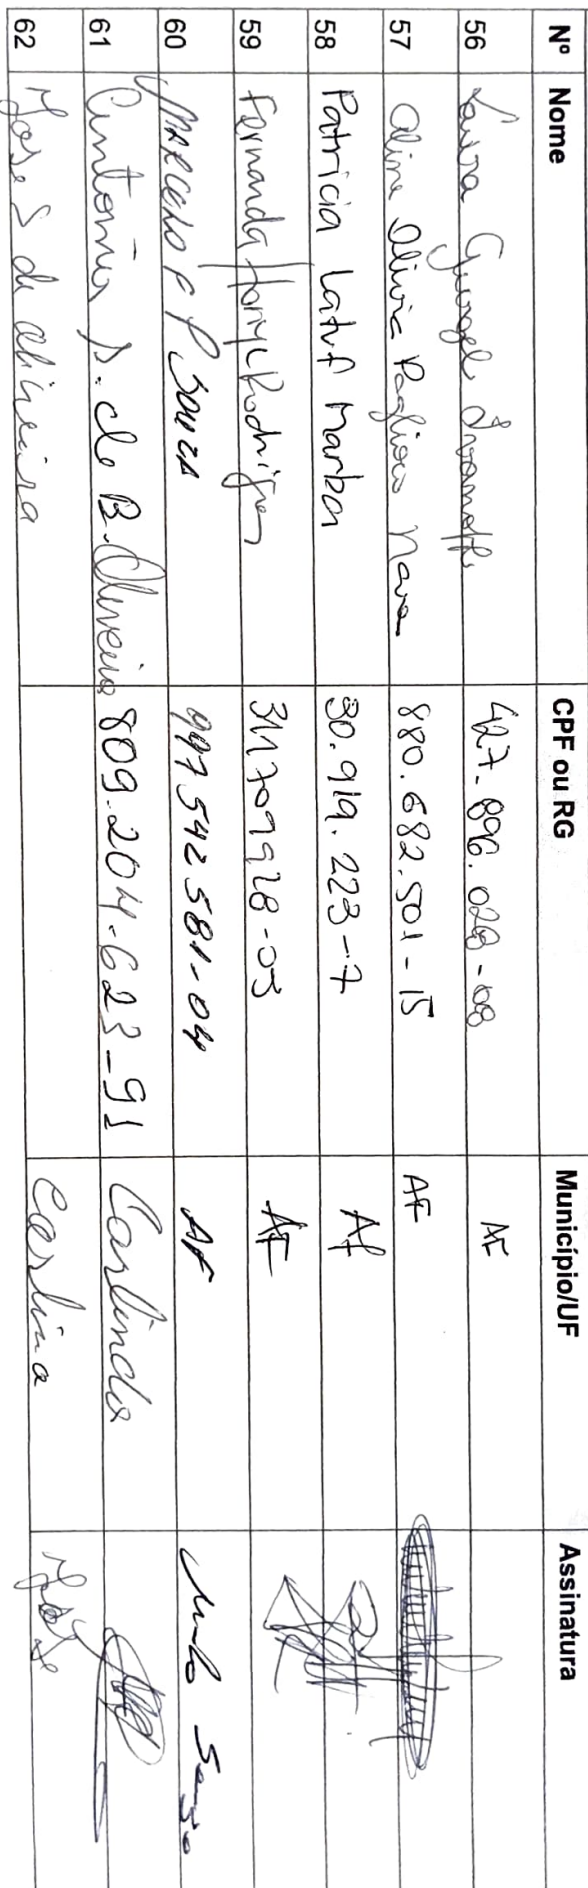 Nº Nome CPF ou RG Município/UF Assinatura
56 Laura Gurgel 427.896.028-08 AF
57 Aline Olivia Paglioco Nava 880.682.501-15 AF
58 Patricia Latuf Marba 30.919.223-7 Af
59 Fernanda Rodrigues 311709928-03 AF
60 MARCELO F P SOUZA 997542581-04 AF
61 Antonio S. de B. Oliveira 809.204.623-91 Carlinda
62 Jose S de oliveira Carlina Jose